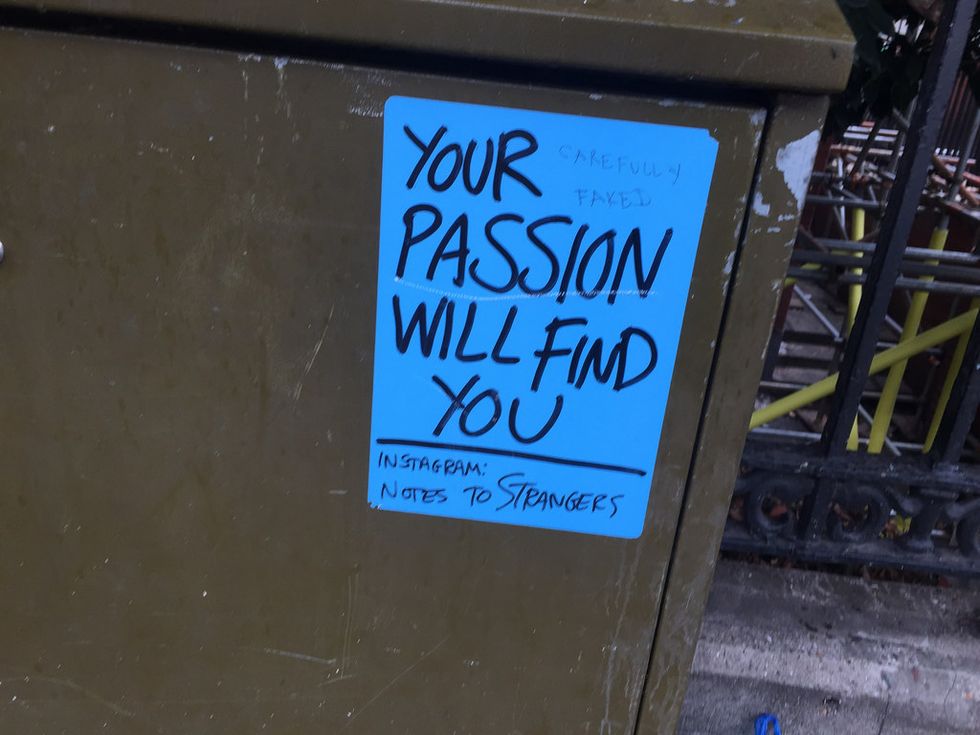 YOUR
CAREFULLY
FAKED
PASSION
WILL FIND
YOU
INSTAGRAM:
NOTES TO STRANGERS